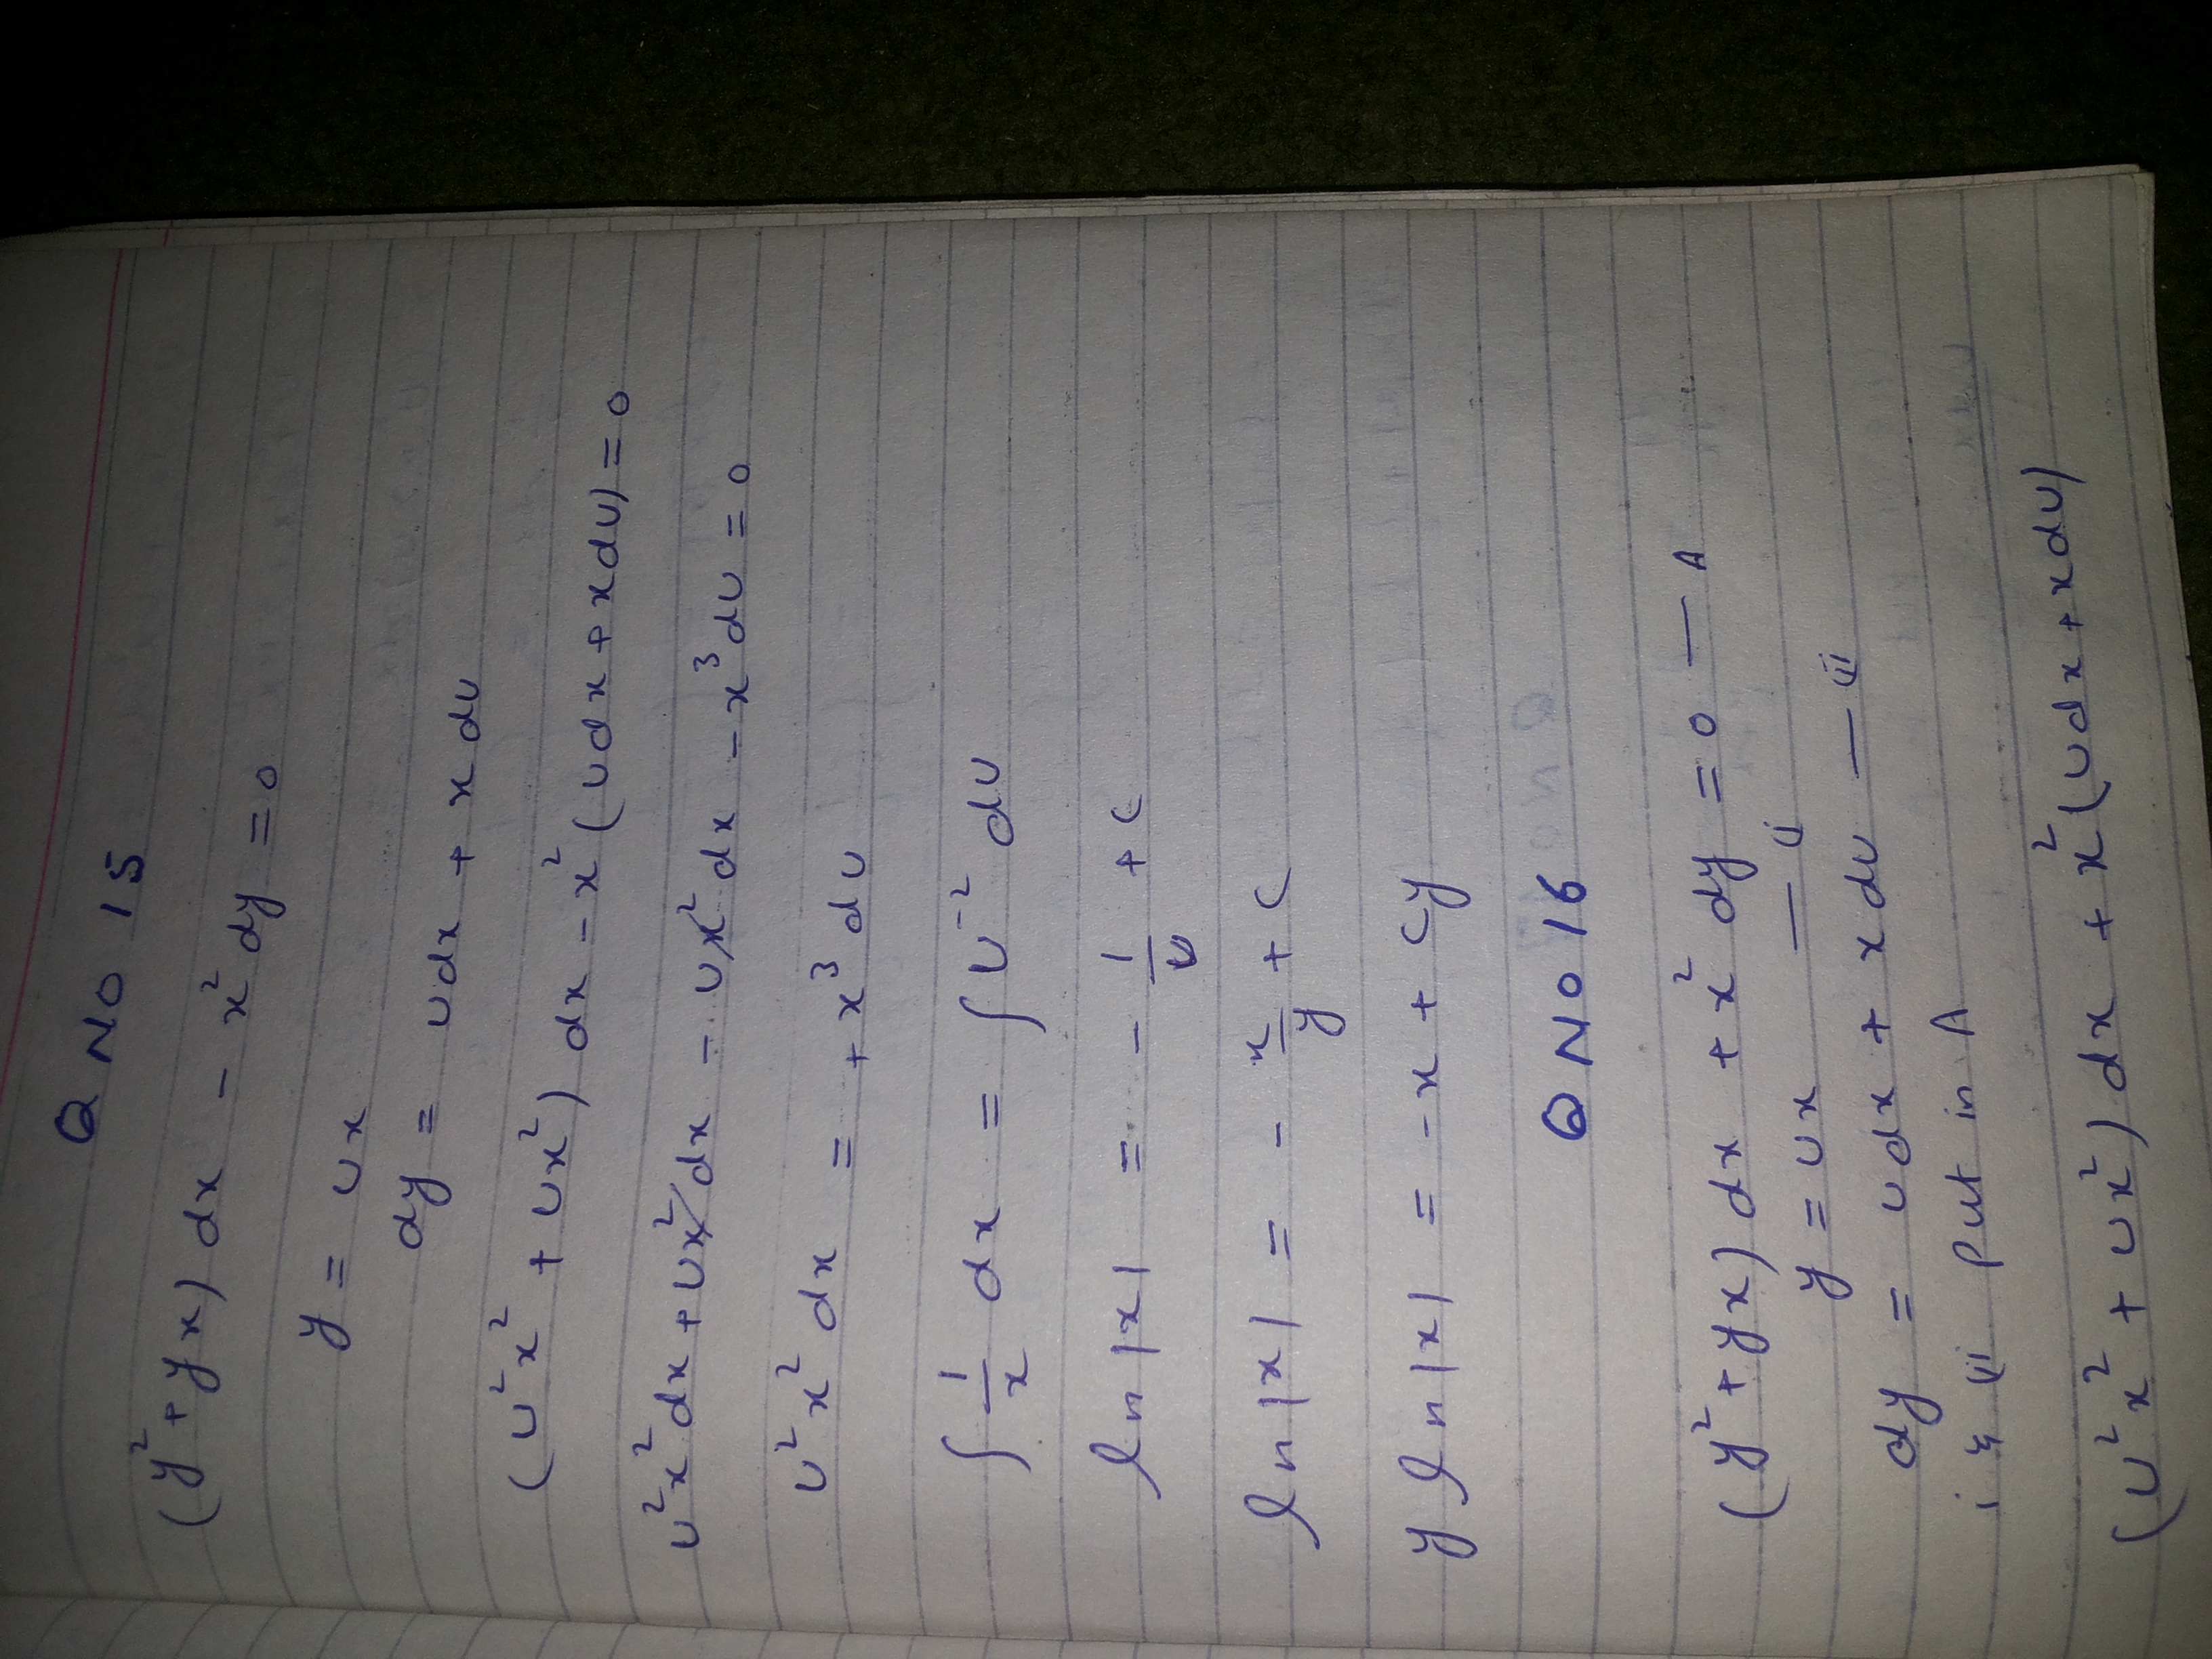 Q No 15
(y² + yx) dx - x² dy = 0
y = Ux
dy = Udx + x dU
(U²x² + Ux²) dx - x² (Udx + xdU) = 0
U²x² dx + Ux² dx - Ux² dx - x³ dU = 0
U²x² dx = + x³ dU
∫ 1/x dx = ∫ U⁻² dU
ln |x| = - 1/U + C
ln |x| = - x/y + C
y ln |x| = -x + Cy
Q No 16
(y² + yx) dx + x² dy = 0 — A
y = Ux — i
dy = Udx + x dU — ii
i & ii put in A
(U²x² + Ux²) dx + x² (Udx + xdU)